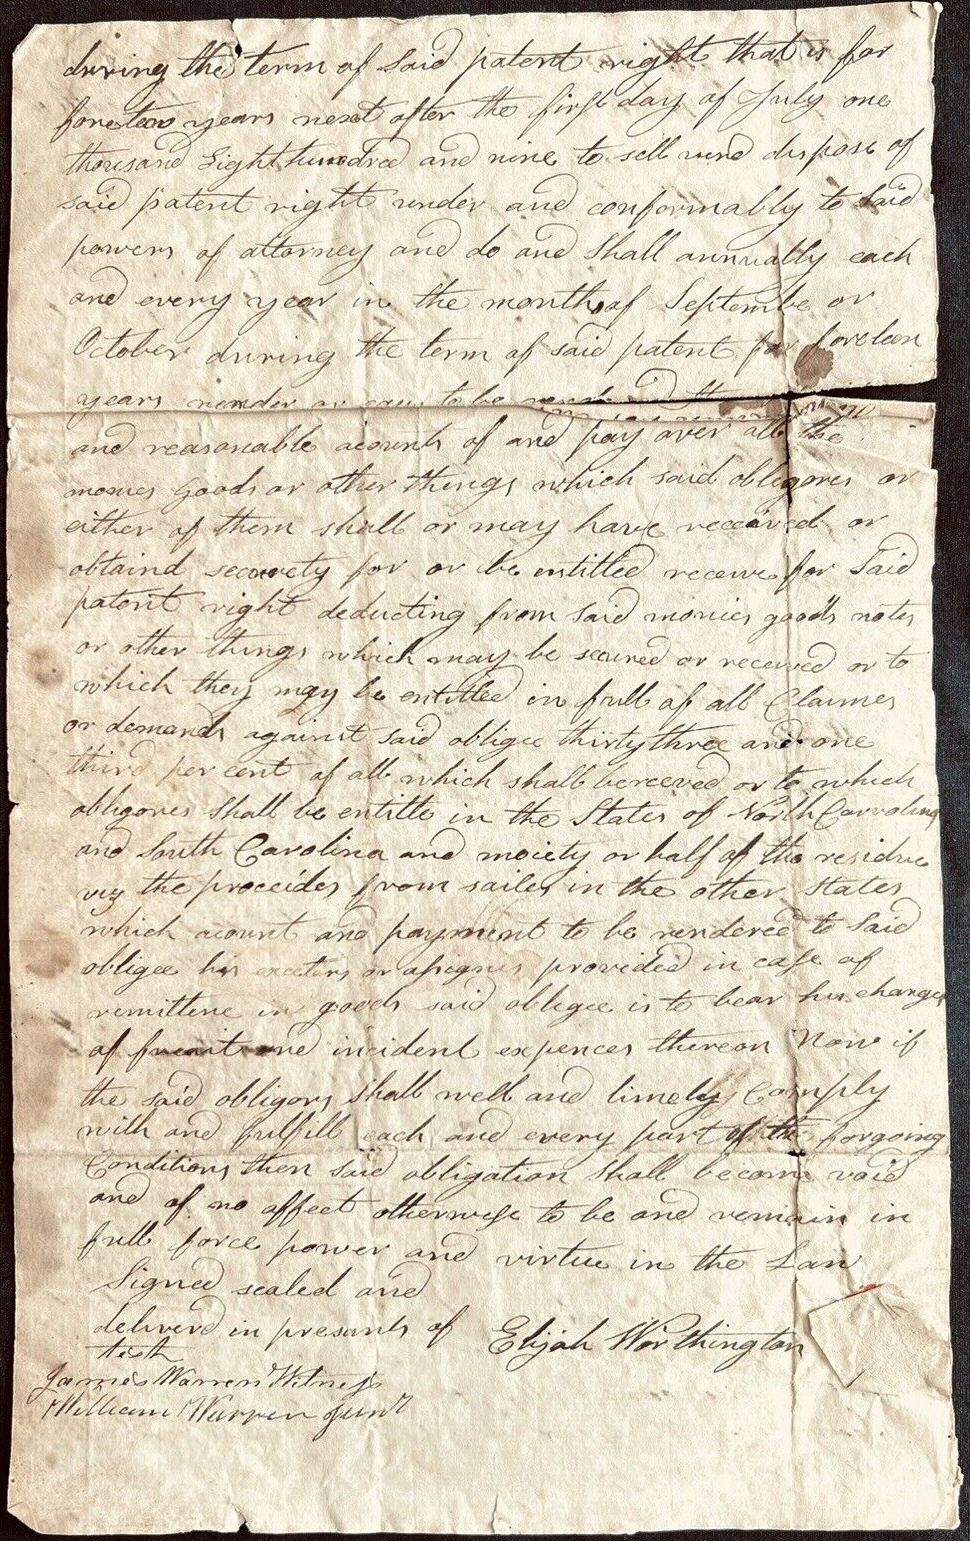 during the term of said patent right that is for
foreteen years next after the first day of July one
thousand Eight hundred and nine to sell vend dispose of
said patent right under and conformably to said
powers of attorney and do and shall annually each
and every year in the month of Septembe or
October during the term of said patent for foreteen
years render or caus to be
and reasonable acounts of and pay over all the
monies Goods or other things which said obligores or
either of them shall or may have received or
obtaind securety for or be entitled receive for Said
patent right deducting from said monies goods notes
or other things which may be secured or received or to
which they may be entitled in full of all Claimes
or demands against said obligee thirty three and one
third per cent of all which shall berceved or to which
obligores shall be entitle in the States of North Carrolina
and South Carolina and moiety or half of the residue
viz the proceides from sailes in the other States
which acount and payment to be rendered to said
obligee his or assegnes provided in case of
remittine in goods said obligee is to bear his charges
of and incident expences thereon Now if
the said obligors shall well and timely Comply
with and fulfill each and every part of the forgoing
Conditions then said obligation shall become void
and of no affect otherwise to be and remain in
full force power and virtue in the Law
Signed sealed and
deliverd in presants of Elijah Worthington
test
James Warren Witness
William Warren Junr